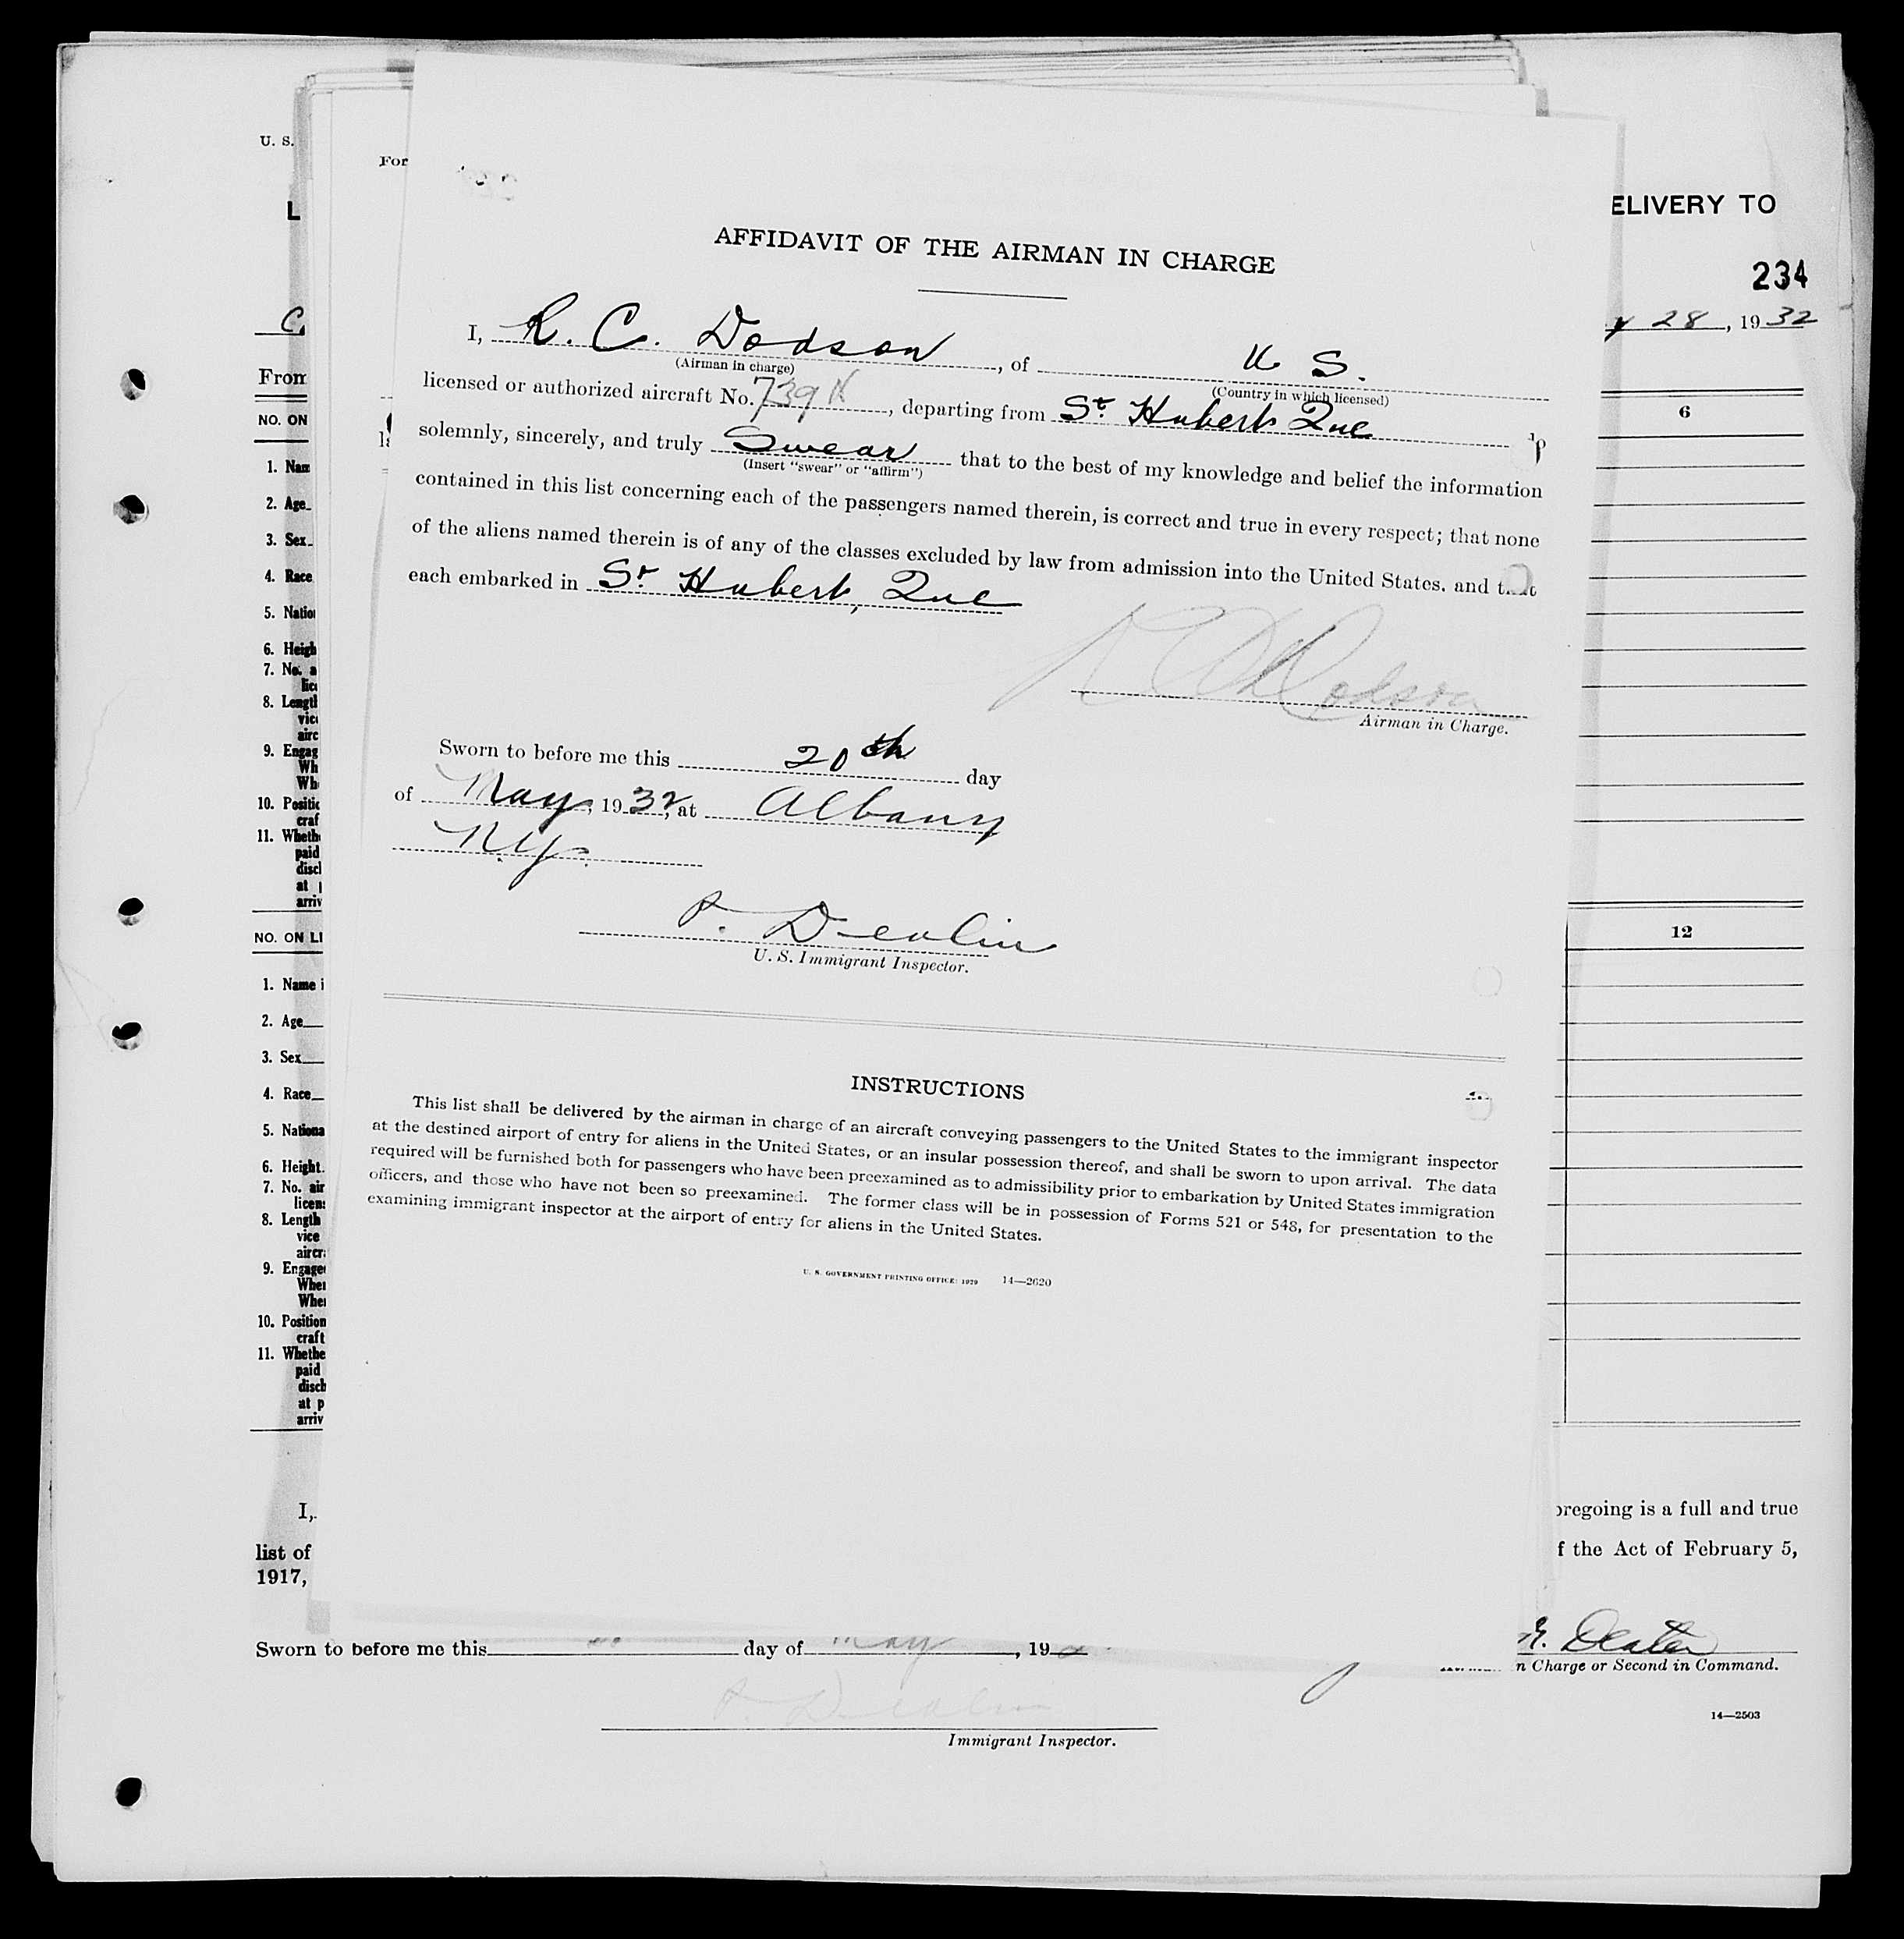 U. S.
For
L
ELIVERY TO
234
28, 1932
C.
From
NO. ON
6
1. Nam
2. Age
3. Sex
4. Race
5. Natio
6. Heigh
7. No. a
lice
8. Lengtl
vice
airc
9. Engag
Wh
Wh
10. Positic
craf
11. Wheth
paid
discl
at
arriv
NO. ON LI
12
1. Name i
2. Age
3. Sex
4. Race
5. Nationa
6. Height
7. No. air
licens
8. Length
vice
aircr
9. Engage
When
Whe
10. Position
craft
11. Whethe
paid
disch
at p
arriv
AFFIDAVIT OF THE AIRMAN IN CHARGE
I, R. C. Dodson, of U S.
(Airman in charge)
(Country in which licensed)
licensed or authorized aircraft No. 739, departing from St. Hubert Que
solemnly, sincerely, and truly Swear that to the best of my knowledge and belief the information
(Insert "swear" or "affirm")
contained in this list concerning each of the passengers named therein, is correct and true in every respect; that none
of the aliens named therein is of any of the classes excluded by law from admission into the United States, and that
each embarked in St. Hubert, Que
Dodson
Airman in Charge.
Sworn to before me this 20th day
of May, 1932, at Albany
N.Y.
U. S. Immigrant Inspector.
INSTRUCTIONS
This list shall be delivered by the airman in charge of an aircraft conveying passengers to the United States to the immigrant inspector
at the destined airport of entry for aliens in the United States, or an insular possession thereof, and shall be sworn to upon arrival. The data
required will be furnished both for passengers who have been preexamined as to admissibility prior to embarkation by United States immigration
officers, and those who have not been so preexamined. The former class will be in possession of Forms 521 or 548, for presentation to the
examining immigrant inspector at the airport of entry for aliens in the United States.
U. S. GOVERNMENT PRINTING OFFICE: 1929 14—2620
I,
oregoing is a full and true
list of
f the Act of February 5,
1917,
Sworn to before me this day of May, 19
n Charge or Second in Command.
14—2503
Immigrant Inspector.